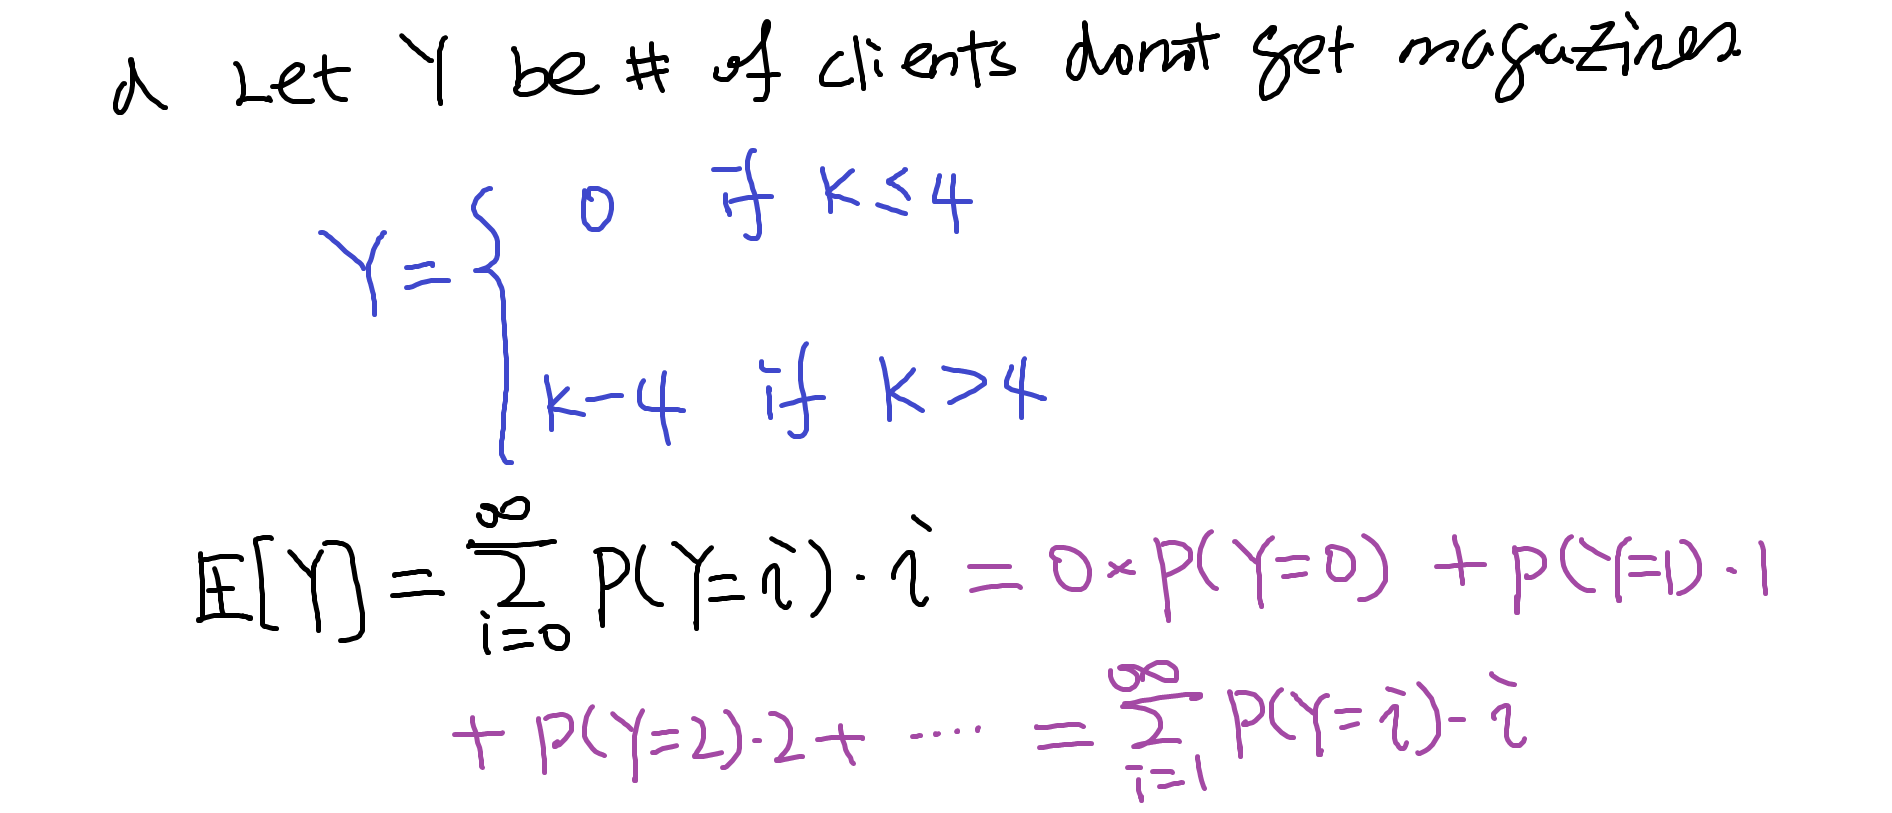 d Let Y be # of clients don't get magazines
Y = { 0 if K ≤ 4
k - 4 if K > 4
E[Y] = ∑_{i=0}^{∞} P(Y=i) · i = 0 × P(Y=0) + P(Y=1) · 1
+ P(Y=2) · 2 + ····· = ∑_{i=1}^{∞} P(Y=i) · i